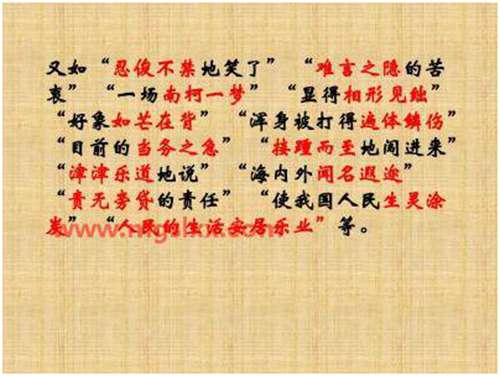 又如“忍俊不禁地笑了” “难言之隐的苦
衷” “一场南柯一梦” “显得相形见绌”
“好象如芒在背” “浑身被打得遍体鳞伤”
“目前的当务之急” “接踵而至地闯进来”
“津津乐道地说” “海内外闻名遐迩”
“责无旁贷的责任” “使我国人民生灵涂
炭” “人民的生活安居乐业” 等。